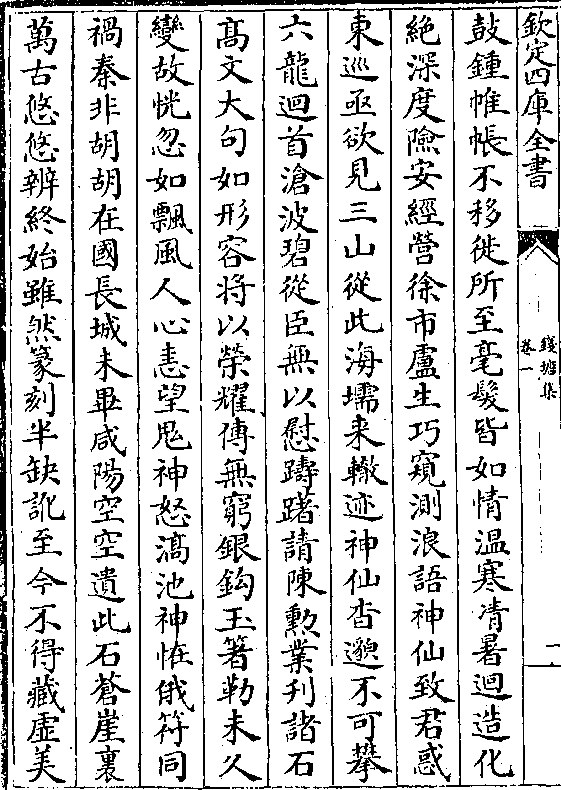 欽定四庫全書
鼔鍾帷帳不移徙所至毫髮皆如情溫寒凊暑迴造化
絶深度險安經營徐市盧生巧窺測浪語神仙致君惑
東巡亟欲見三山從此海壖来轍迹神仙杳邈不可攀
六龍迴首滄波碧從臣無以慰躊躇請陳勲業刋諸石
髙文大句如形容将以榮耀傳無窮銀鈎玉箸勒未久
變故恍忽如飄風人心恚望鬼神怒滈池神怪俄符同
禍秦非胡胡在國長城未畢咸陽空空遺此石蒼崖裏
萬古悠悠辨終始雖然篆刻半缺訛至今不得藏虚美
卷一
一